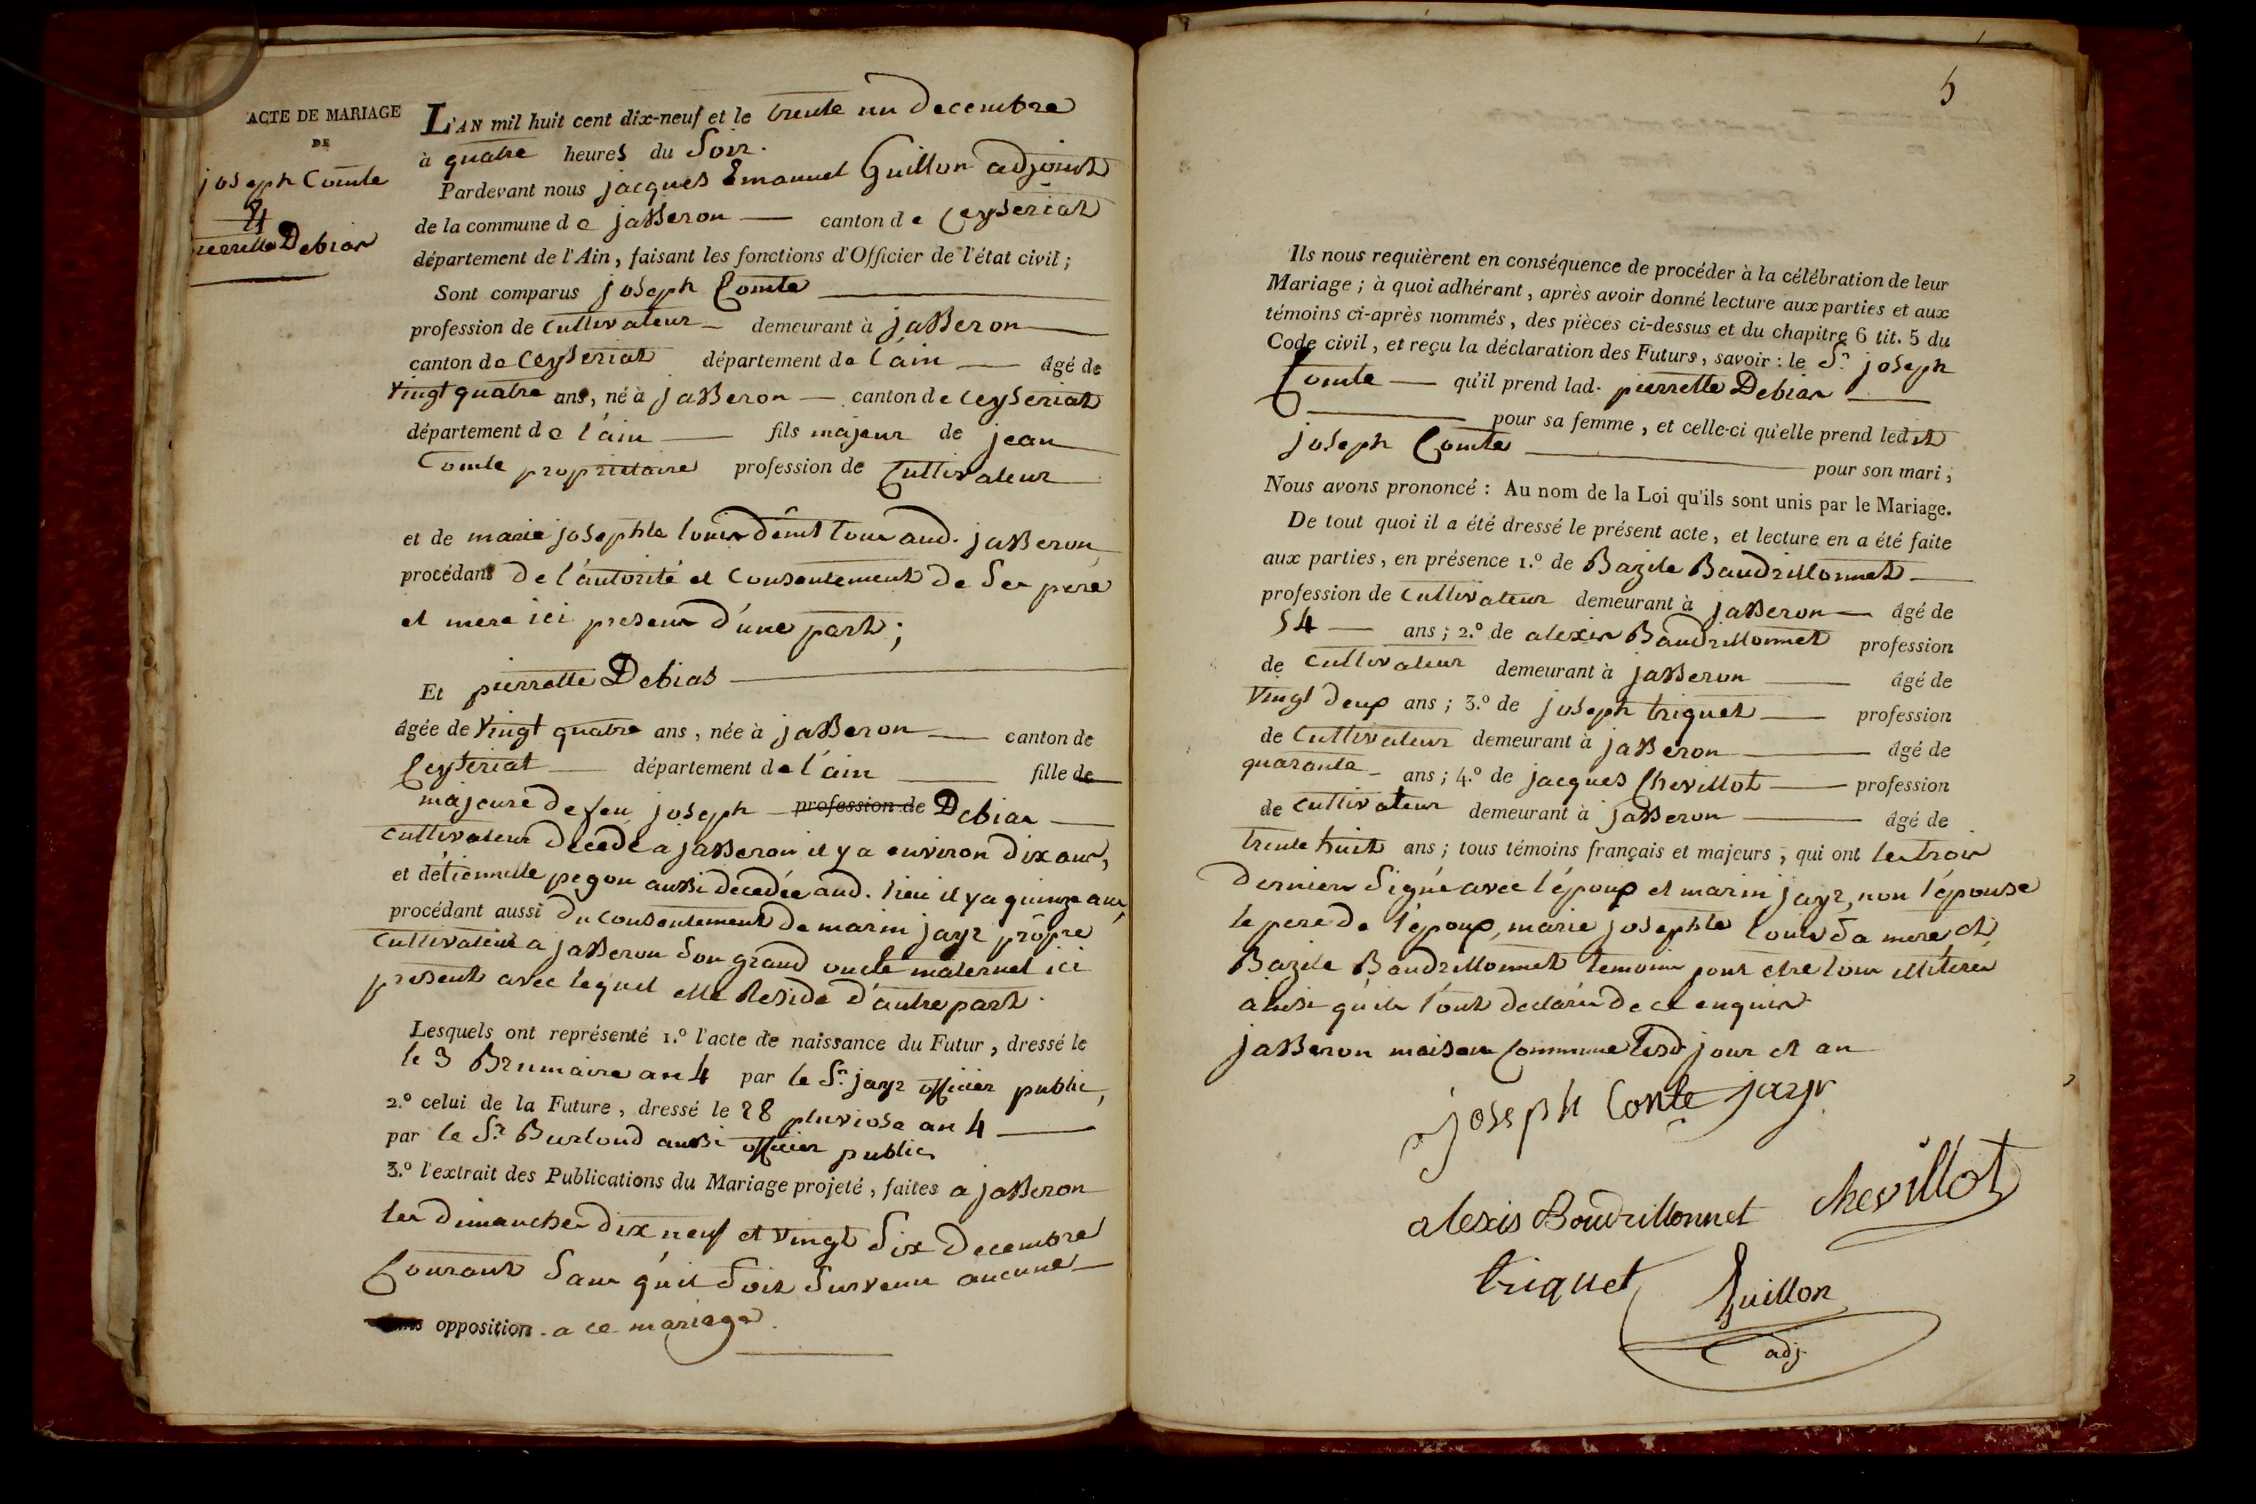 ACTE DE MARIAGE
DE
joseph Comte
&
pierrette Debias
L'AN mil huit cent dix-neuf et le trente un decembre
à quatre heures du Soir.
Pardevant nous jacques Emanuel Guillon adjoint
de la commune de jasseron canton de Ceyseriat
département de l'Ain, faisant les fonctions d'Officier de l'état civil;
Sont comparus joseph Comte
profession de Cultivateur demeurant à jasseron
canton de Ceyseriat département de l'ain âgé de
vingt quatre ans, né à jasseron canton de Ceyseriat
département de l'ain fils majeur de jean
Comte propriétaire profession de Cultivateur
et de marie josephte louis d'émt tous aud. jasseron
procédant de l'autorité et Consentement de Ses pere
et mere ici presens d'une part;
Et pierrette Debias
âgée de vingt quatre ans, née à jasseron canton de
Ceyseriat département de l'ain fille de
majeure de feu joseph profession de Debias
cultivateur décedé a jasseron il y a environ dix ans,
et d'étiennette pegon aussi decedée aud. lieu il y a quinze ans,
procédant aussi du consentement de marin jayr propre
Cultivateur a jasseron Son grand oncle maternel ici
present avec lequel elle Reside d'autre part.
Lesquels ont représenté 1.º l'acte de naissance du Futur, dressé le
le 3 Brumaire an 4 par le Sr. jayr officier public,
2.º celui de la Future, dressé le 28 pluviose an 4
par le Sr. Burloud aussi officier public
3.º l'extrait des Publications du Mariage projeté, faites a jasseron
les dimanches dix neuf et vingt Six decembre
Courant Sans qu'il Soit Survenu aucune
opposition. a ce mariage.
5
Ils nous requièrent en conséquence de procéder à la célébration de leur
Mariage; à quoi adhérant, après avoir donné lecture aux parties et aux
témoins ci-après nommés, des pièces ci-dessus et du chapitre 6 tit. 5 du
Code civil, et reçu la déclaration des Futurs, savoir: le Sr. joseph
Comte qu'il prend lad. pierrette Debias
pour sa femme, et celle-ci qu'elle prend ledit
joseph Comte pour son mari;
Nous avons prononcé: Au nom de la Loi qu'ils sont unis par le Mariage.
De tout quoi il a été dressé le présent acte, et lecture en a été faite
aux parties, en présence 1.º de Bazile Baudrillonnet
profession de Cultivateur demeurant à jasseron âgé de
54 ans; 2.º de alexis Baudrillonnet profession
de Cultivateur demeurant à jasseron âgé de
vingt deux ans; 3.º de joseph triquet profession
de Cultivateur demeurant à jasseron âgé de
quarante ans; 4.º de jacques Chevillot profession
de Cultivateur demeurant à jasseron âgé de
trente huit ans; tous témoins français et majeurs, qui ont les trois
derniers Signé avec l'époux et marin jayr, non l'épouse
le pere de l'époux, marie josephte louis Sa mere et
Bazile Baudrillonnet temoins pour etre tous illiterés
ainsi qu'ils l'ont declarés de ce enquis
jasseron maison Commune lesd jour et an
joseph Conte jayr
alexis Boudrillonnet chevillot
triquet Guillon
adj.